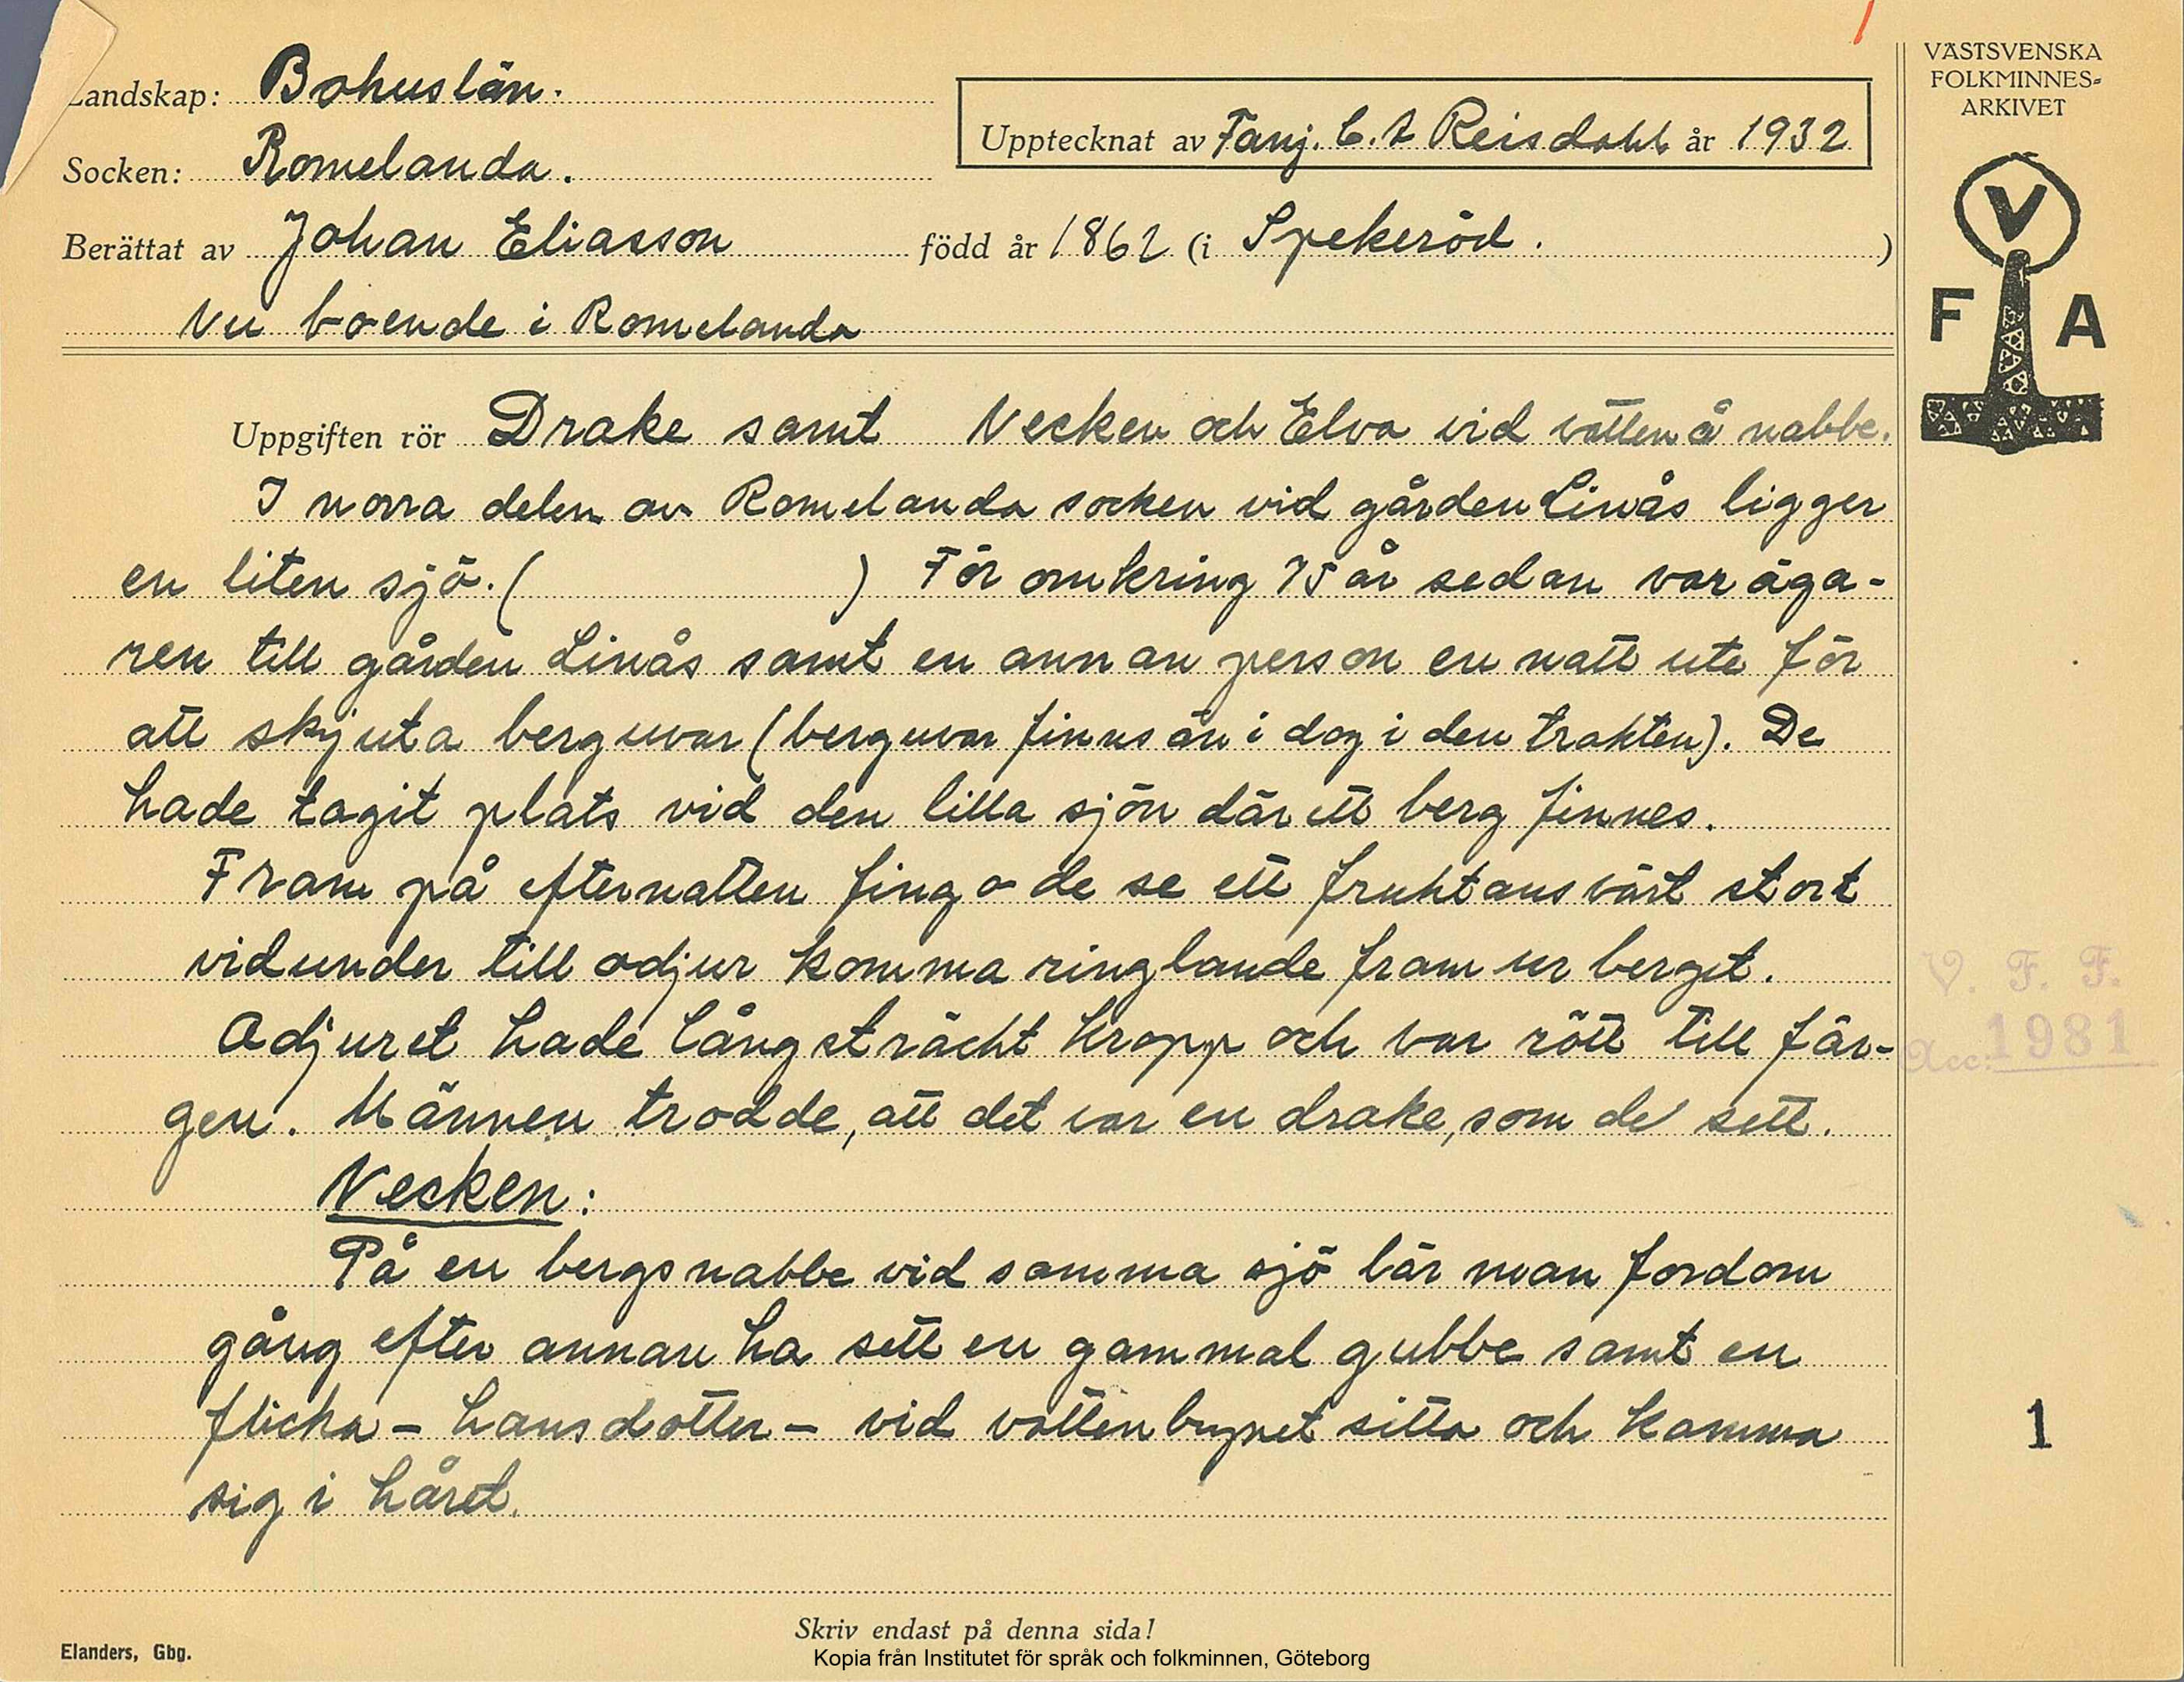 Landskap: Bohuslän.
Socken: Romelanda.
Upptecknat av Fanj. C. A Reisdahl år 1932
Berättat av Johan Eliasson född år 1862 (i Spekeröd.)
Nu boende i Romelanda
VÄSTSVENSKA
FOLKMINNES-
ARKIVET
V
F A
Uppgiften rör Drake samt Necken och Elva vid vatten å nabbe.
I norra delen av Romelanda socken vid gården Linås ligger
en liten sjö. ( ) För omkring 75 år sedan var äga-
ren till gården Linås samt en annan person en natt ute för
att skjuta berguvar (berguvar finns än i dag i den trakten). De
hade tagit plats vid den lilla sjön där ett berg finnes.
Fram på efternatten fingo de se ett fruktansvärt stort
vidunder till odjur komma ringlande fram ur berget.
Odjuret hade långsträckt kropp och var rött till fär-
gen. Männen trodde, att det var en drake, som de sett.
Necken:
På en bergsnabbe vid samma sjö lär man fordom
gång efter annan ha sett en gammal gubbe samt en
flicka - hans dotter - vid vattenbrynet sitta och kamma
sig i håret.
V. F. F.
Acc. 1981
1
Skriv endast på denna sida!
Elanders, Gbg.
Kopia från Institutet för språk och folkminnen, Göteborg